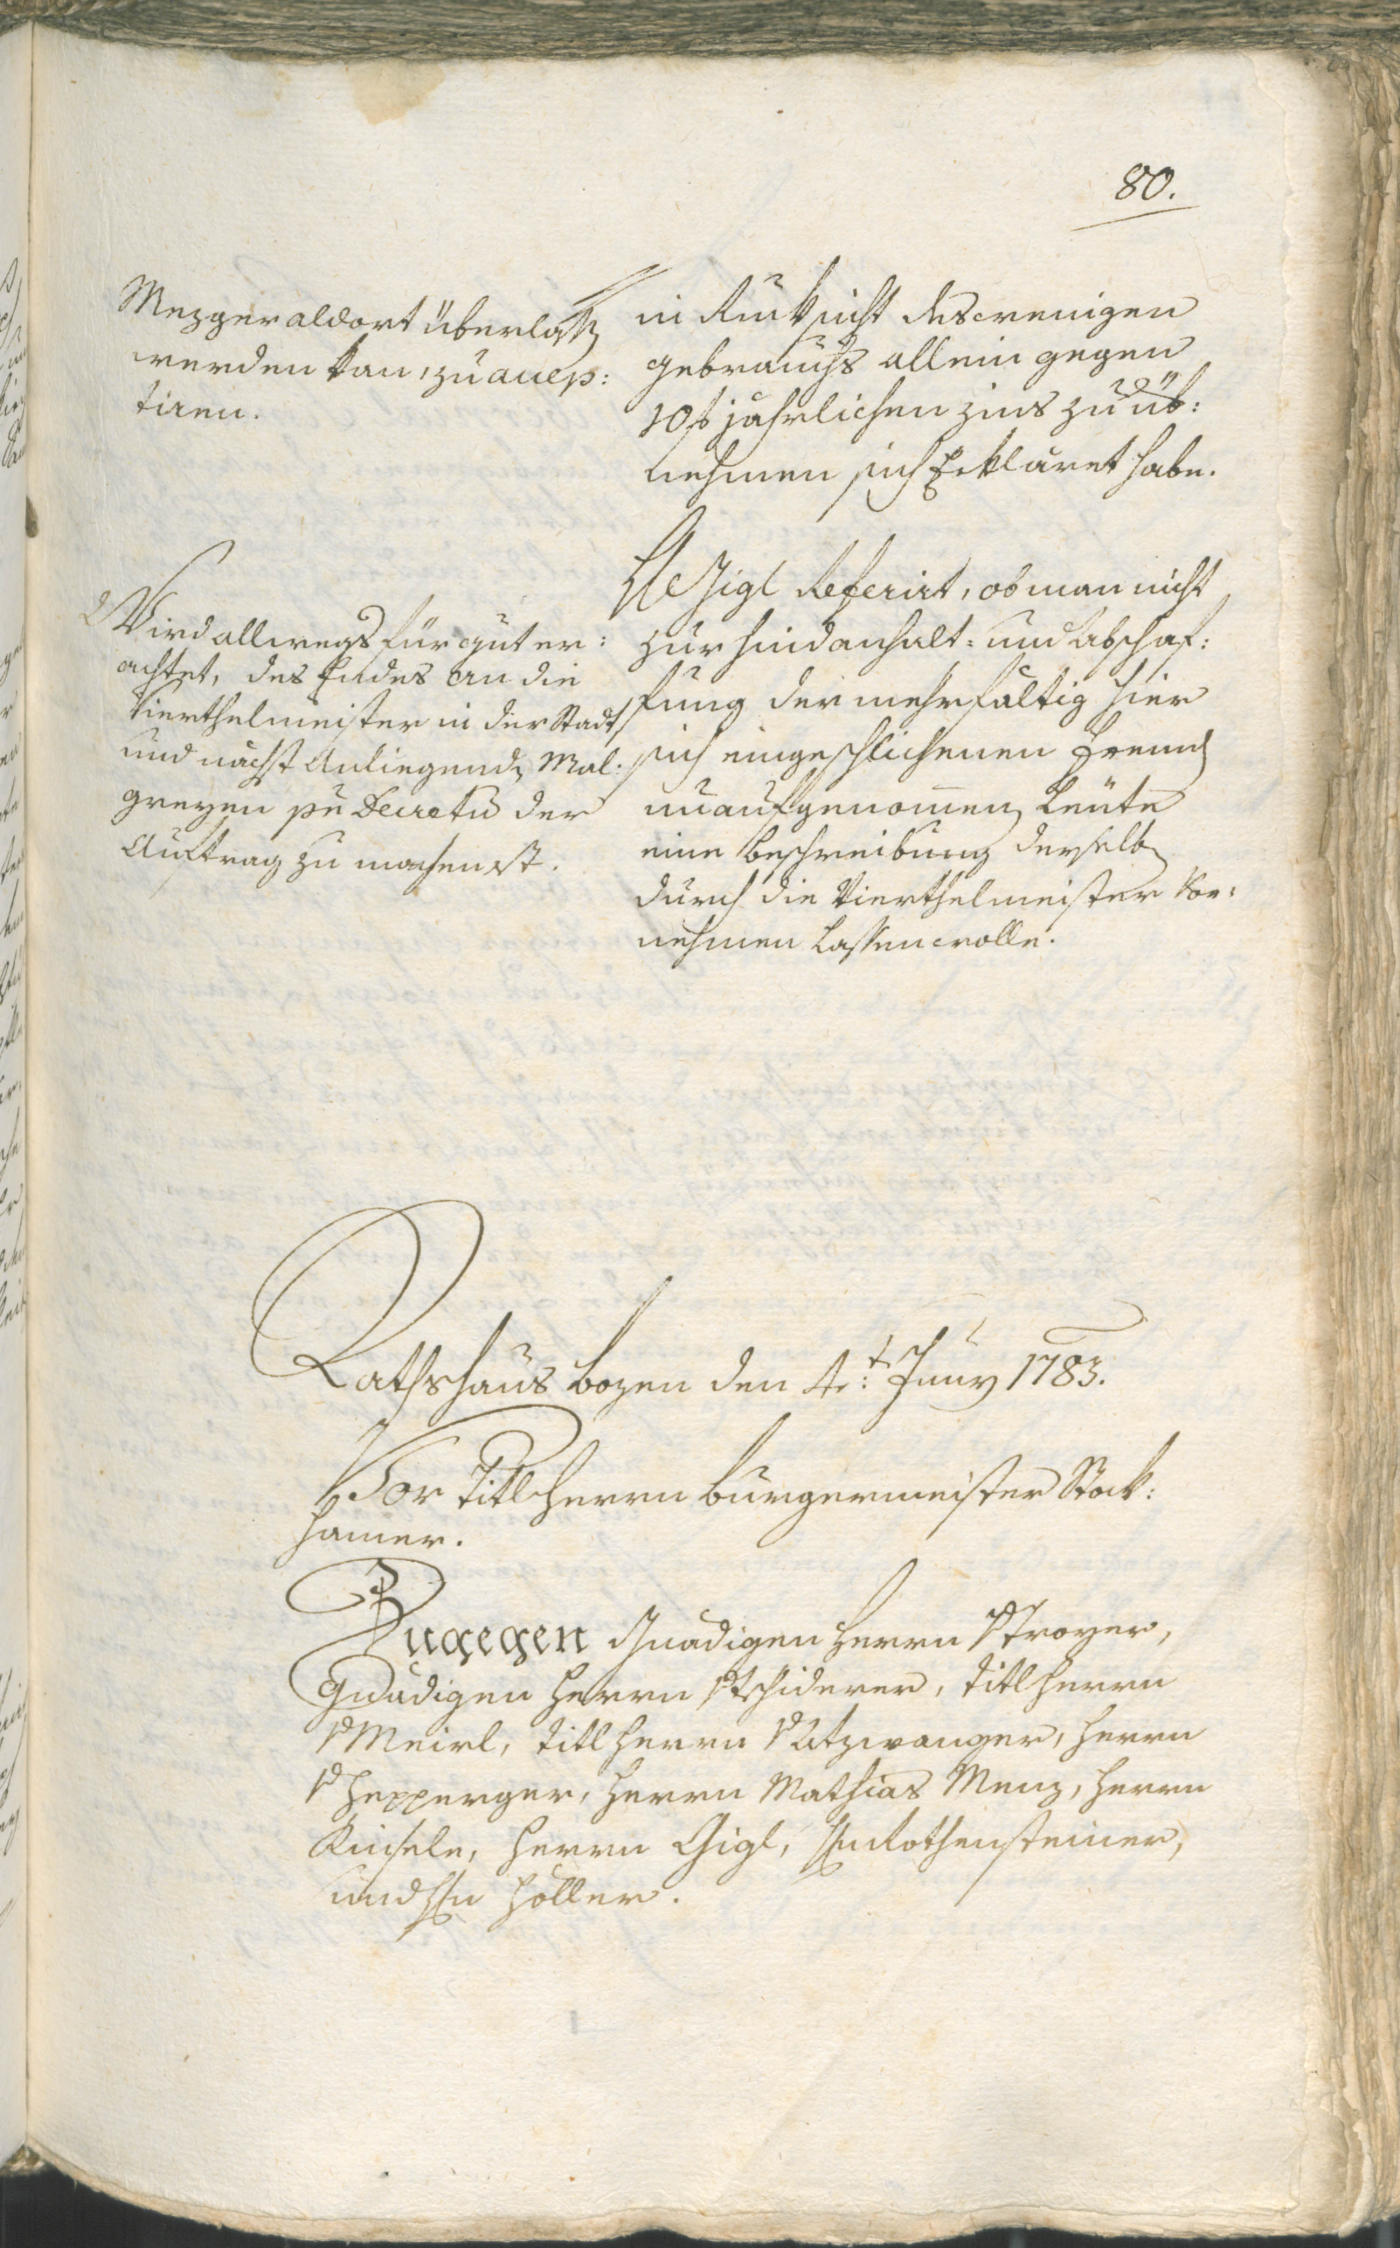 80.
Mezger aldort überlaßen
werden kan, zu accep:
tiren.
in Rucksicht des wenigen
gebrauchs allein gegen
10 f jährlichen zins zu üb:
nehmen sich Erkläret habe.
Wird allwegs für gut er:
achtet, des Endes an die
Vierthelmeister in der Stadt
und nächst Anliegenden Mal:
greyen per Decretum der
Auftrag zu machen ist.
H Gigl Referirt, ob man nicht
zur hindanhalt- und Abschaf:
fung der mehrfältig hier
sich eingeschlichenen fremden
unaufgenommenen Leüte
eine beschreibung derselben
durch die Vierthelmeister Vor:
nehmen Lassen wolle.
Rathshaus bozen den 4.t Juny 1783.
Vor Titl Herrn Burgermeister Stock:
hamer.
Zugegen Gnädigen Herrn v Troyer,
Gnädigen Herrn v Tschiderer, Titl Herrn
v Meirl, Titl Herrn v Atzwanger, Herrn
v Hepperger, Herrn Mathias Menz, Herrn
Kinsele, Herrn Gigl, Hn Rothensteiner,
und Hn Höller.